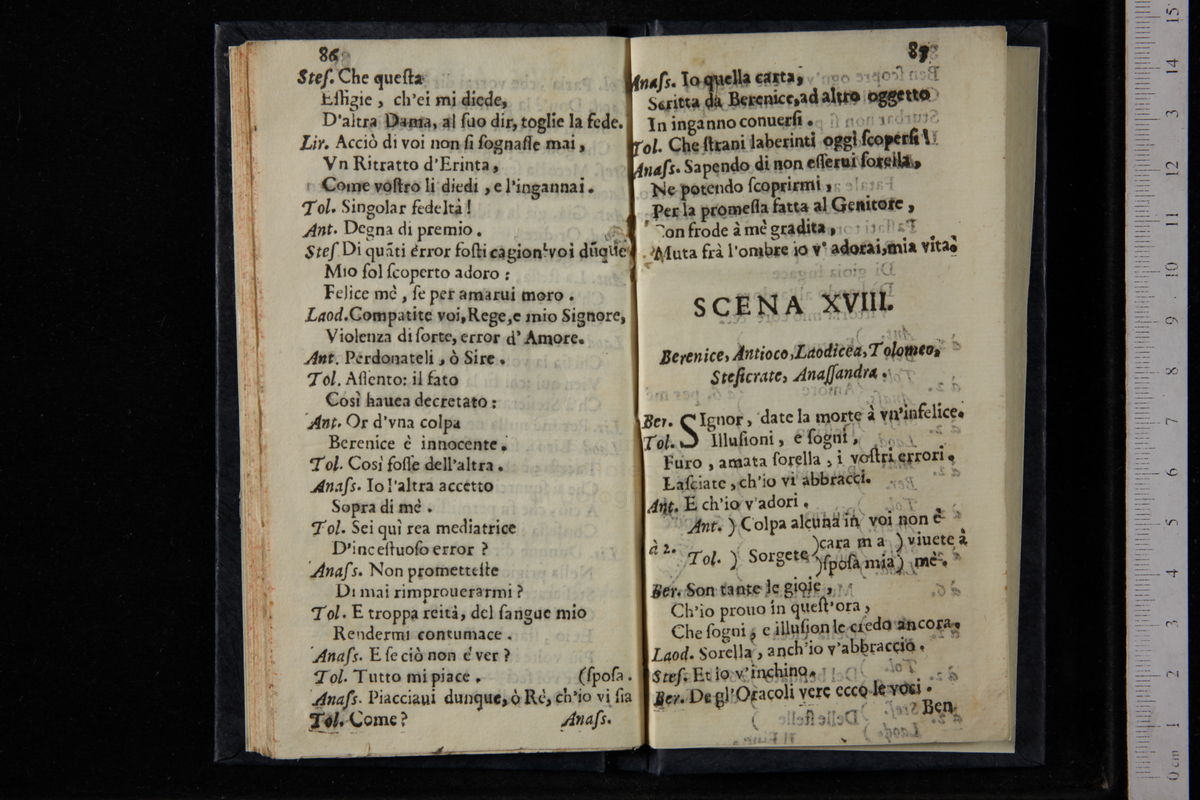 86
Steſ. Che queſta
Effigie, ch'ei mi diede,
D'altra Dama, al ſuo dir, toglie la fede.
Lir. Acciò di voi non ſi ſognaſſe mai,
Vn Ritratto d'Erinta,
Come voſtro li diedi, e l'ingannai.
Tol. Singolar fedeltà!
Ant. Degna di premio.
Steſ Di quãti érror foſti cagion! voi dũque
Mio ſol ſcoperto adoro:
Felice mè, ſe per amarui moro.
Laod. Compatite voi, Rege, e mio Signore,
Violenza di ſorte, error d'Amore.
Ant. Perdonateli, ò Sire.
Tol. Aſſento: il fato
Così hauea decretato:
Ant. Or d'vna colpa
Berenice è innocente.
Tol. Così foſſe dell'altra.
Anaſs. Io l'altra accetto
Sopra di mè.
Tol. Sei quì rea mediatrice
D'inceſtuoſo error?
Anaſs. Non prometteſte
Di mai rimprouerarmi?
Tol. E troppa reità, del ſangue mio
Rendermi contumace.
Anaſs. E ſe ciò non é ver?
Tol. Tutto mi piace. (ſpoſa.
Anaſs. Piacciaui dunque, ò Rè, ch'io vi ſia
Tol. Come? Anaſs.
87
Anaſs. Io quella carta,
Scritta da Berenice, ad altro oggetto
In inganno conuerſi.
Tol. Che ſtrani laberinti oggi ſcoperſi!
Anaſs. Sapendo di non eſſerui ſorella,
Ne potendo ſcoprirmi,
Per la promeſſa fatta al Genitore,
Con frode à mè gradita,
Muta frà l'ombre io v' adorai, mia vita.
SCENA XVIII.
Berenice, Antioco, Laodicea, Tolomeo,
Steſicrate, Anaſſandra.
Ber. SIgnor, date la morte à vn'infelice.
Tol. Illuſioni, e ſogni,
Furo, amata ſorella, i voſtri errori.
Laſciate, ch'io vi abbracci.
Ant. E ch'io v'adori.
Ant. ) Colpa alcuna in voi non è
à 2. )cara m a ) viuete à
Tol. ) Sorgete )ſpoſa mia) mè.
Ber. Son tante le gioie,
Ch'io prouo in queſt'ora,
Che ſogni, e illuſion le credo ancora.
Laod. Sorella, anch'io v'abbraccio.
Steſ. Et io v'inchino.
Ber. De gl'Oracoli vere ecco le voci.
Ben